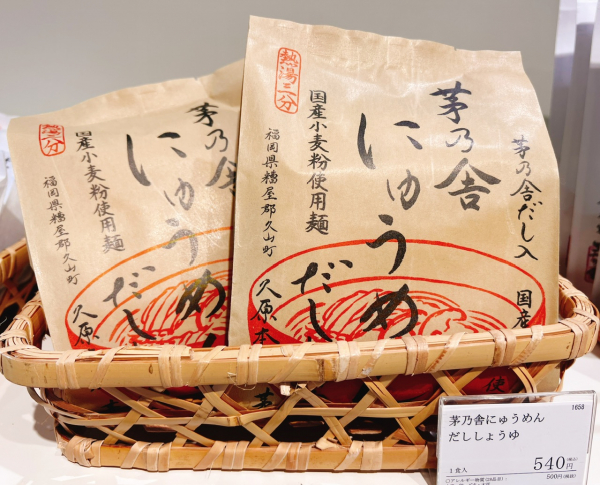 熱湯三分
国産小麦粉使用麺
福岡県糟屋郡久山町
久原本
茅乃舎
にゅうめん
だし
茅乃舎だし入
国産
国産小麦粉使用麺
福岡県糟屋郡久山町
久原
茅乃舎
にゅうめん
だし
1658
茅乃舎にゅうめん
だししょうゆ
1食入
540円(税込)
500円(税抜)